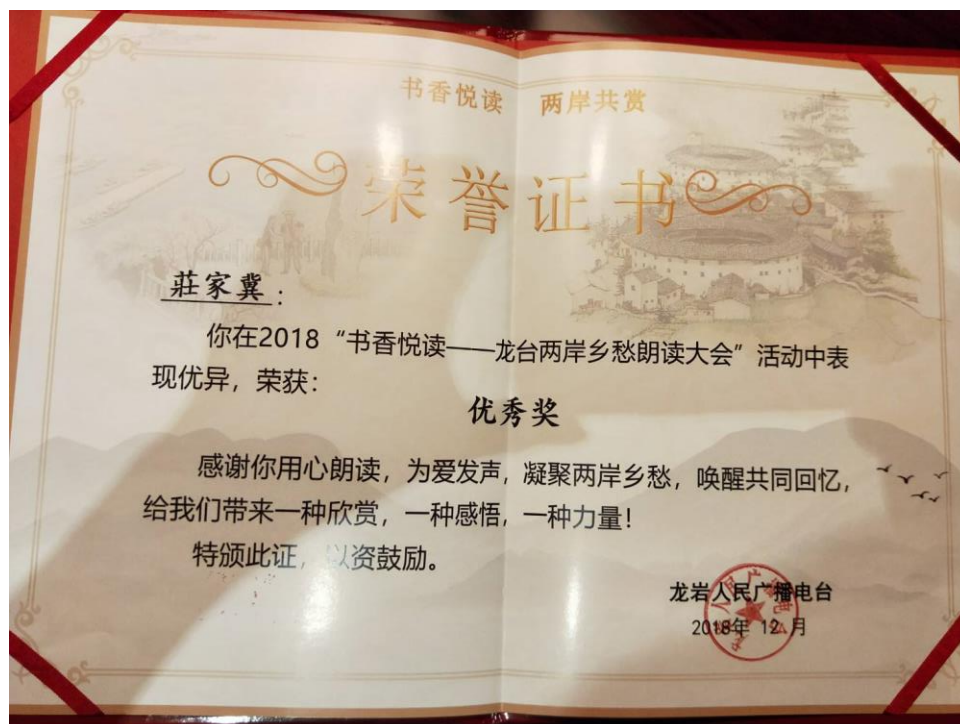 书香悦读 两岸共赏
荣誉证书
莊家冀:
你在2018“书香悦读——龙台两岸乡愁朗读大会”活动中表
现优异，荣获：
优秀奖
感谢你用心朗读，为爱发声，凝聚两岸乡愁，唤醒共同回忆，
给我们带来一种欣赏，一种感悟，一种力量！
特颁此证，以资鼓励。
龙岩人民广播电台
2018年 12 月